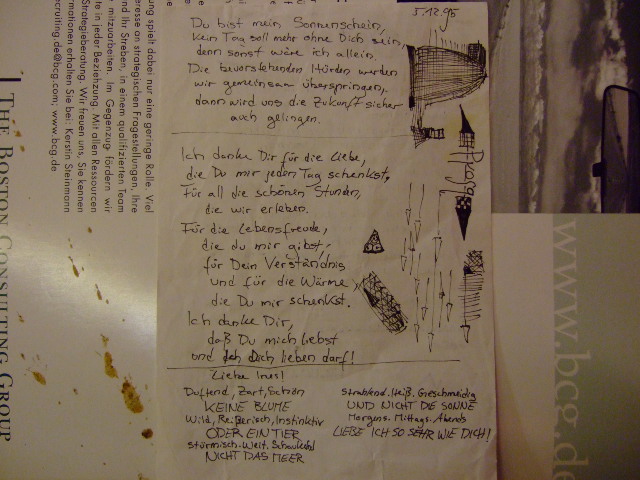 5.12.95
Du bist mein Sonnenschein,
kein Tag soll mehr ohne Dich sein,
denn sonst wäre ich allein
Die bevorstehenden Hürden werden
wir gemeinsam überspringen,
dann wird uns die Zukunft sicher
auch gelingen.
Ich danke Dir für die Liebe,
die Du mir jeden Tag schenkst.
Für all die schönen Stunden,
die wir erleben.
Für die Lebensfreude,
die du mir gibst,
für Dein Verständnis
und für die Wärme
die Du mir schenkst.
Ich danke Dir,
daß Du mich liebst
und ich Dich lieben darf!
Liebe Ines!
Duftend, Zart, Schön
KEINE BLUME
Wild, Reißerisch, Instinktiv
ODER EIN TIER
Stürmisch. Weit. Schaukelnd
NICHT DAS MEER
Strahlend. Heiß. Geschmeidig
UND NICHT DIE SONNE
Morgens. Mittags. Abends
LIEBE ICH SO SEHR WIE DICH!
ung spielt dabei nur eine geringe Rolle. Viel
eresse an strategischen Fragestellungen, Ihre
nd Ihr Streben, in einem qualifizierten Team
mitzuarbeiten. Im Gegenzug fordern wir
te in jeder Beziehung. Mit allen Ressourcen
Strategieberatung. Wir freuen uns, Sie kennen
rmationen erhalten Sie bei: Kerstin Steinmann
ecruiting.de@bcg.com; www.bcg.de
THE BOSTON CONSULTING GROUP
www.bcg.de